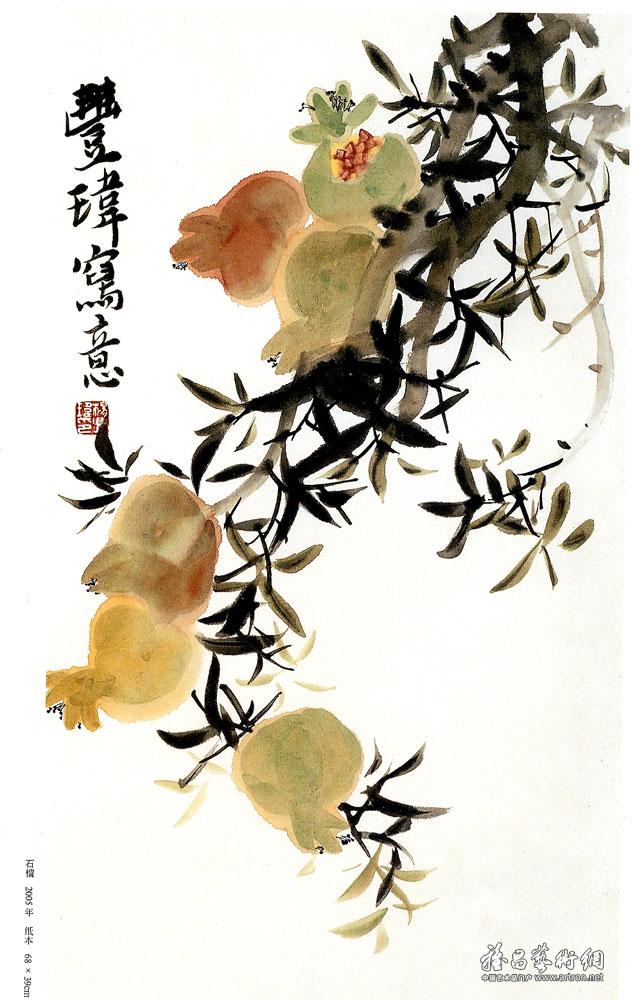 豐瑋寫意
石榴 2005年 纸本 68×39cm
雅昌藝術網
中国艺术品门户 www.artron.net